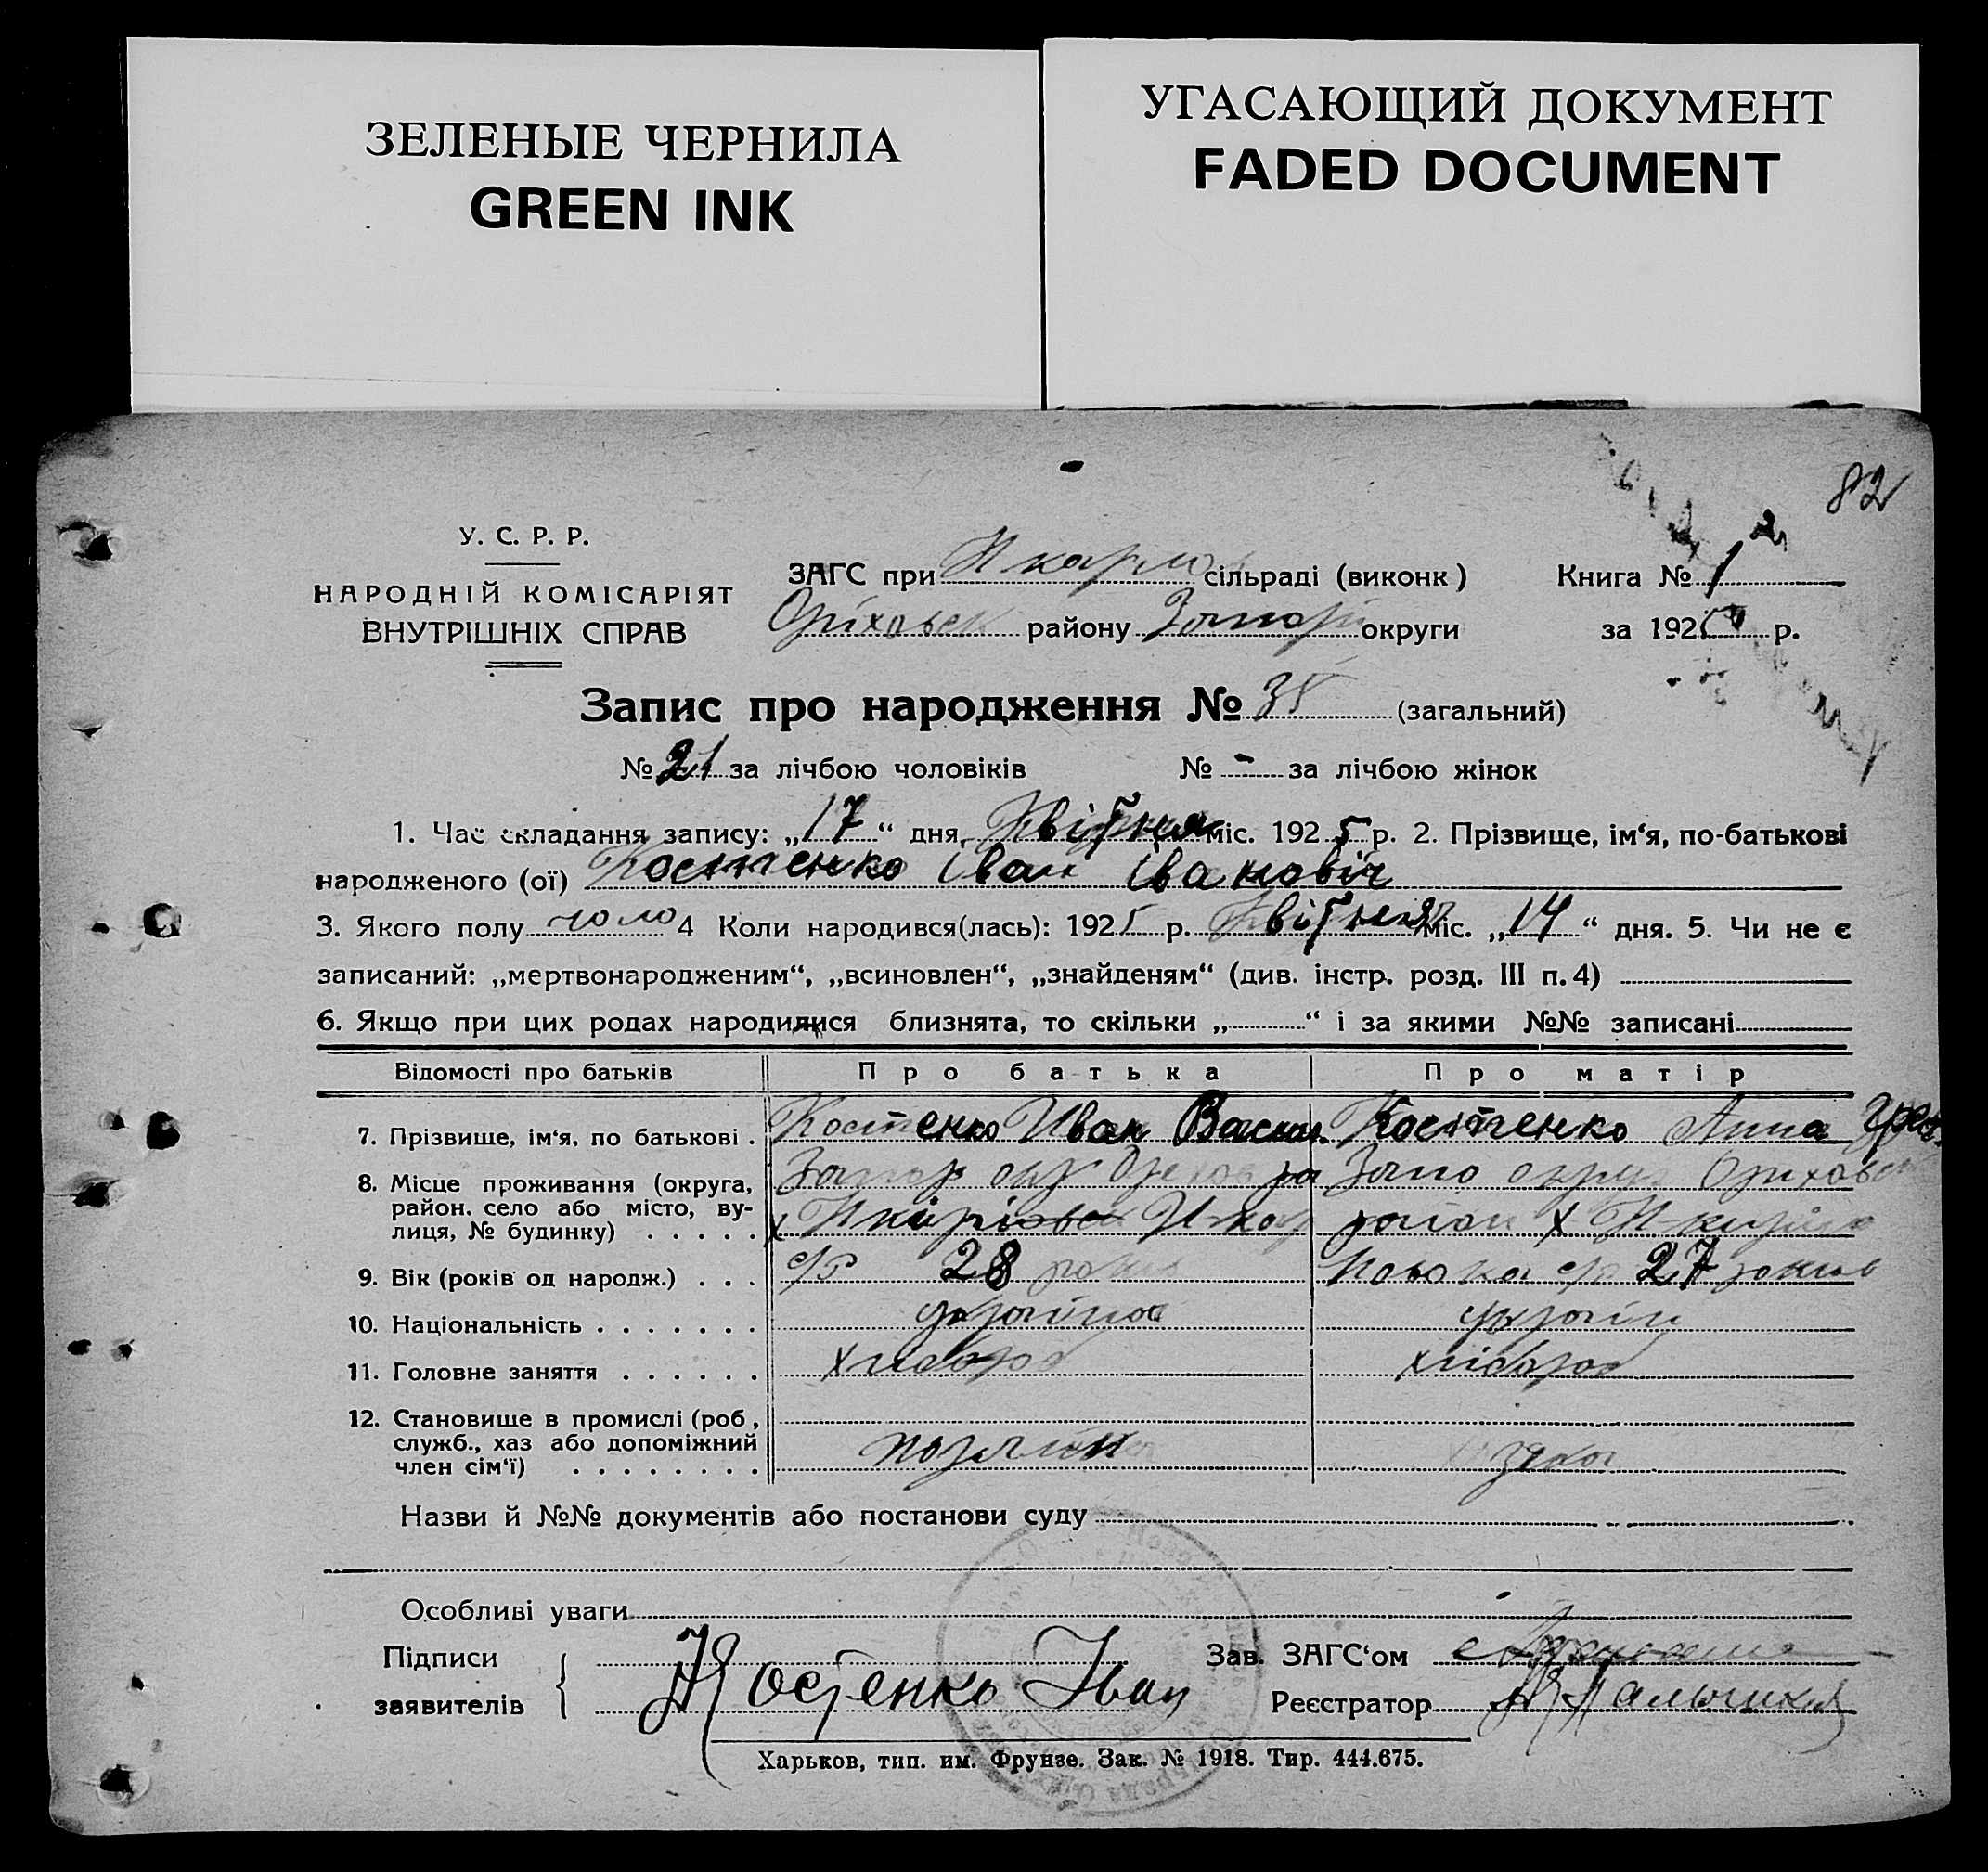 ЗЕЛЕНЫЕ ЧЕРНИЛА
GREEN INK
УГАСАЮЩИЙ ДОКУМЕНТ
FADED DOCUMENT
82
У. С. Р. Р.
НАРОДНІЙ КОМІСАРІЯТ
ВНУТРІШНІХ СПРАВ
ЗАГС при Н карло сільраді (виконк) Книга № 1
Оріховск району Запорі округи за 192 р.
Запис про народження № 35 (загальний)
№ 21 за лічбою чоловіків № - за лічбою жінок
1. Час складання запису: „17“ дня Квітня міс. 1925 р. 2. Прізвище, ім‘я, по-батькові
народженого (ої) Костенко Іван Івановіч
3. Якого полу чоло 4 Коли народився(лась): 1925 р. Квітня міс. „14“ дня. 5. Чи не є
записаний: „мертвонародженим“, „всиновлен“, „знайденям“ (див. інстр. розд. III п. 4)
6. Якщо при цих родах народилися близнята, то скільки „ “ і за якими №№ записані
Відомості про батьків Про батька Про матір
7. Прізвище, ім‘я, по батькові . Костенко Иван Васил Костенко Анна
8. Місце проживання (округа, район. село або місто, вулиця, № будинку) . . . . . Запор окр Запо Оріхов
район х
9. Вік (років од народж.) . . . с/р 28 років с/р 27 років
10. Національність . . . . . . . україн україн
11. Головне заняття . . . . . . хлібороб хлібороб
12. Становище в промислі (роб,
служб., хаз або допоміжний
член сім‘ї) . . . . . . . .
Назви й №№ документів або постанови суду
Особливі уваги
Підписи
заявителів
Костенко Іван
Зав. ЗАГС‘ом
Реєстратор
Харьков, тип. им. Фрунзе. Зак. № 1918. Тир. 444.675.